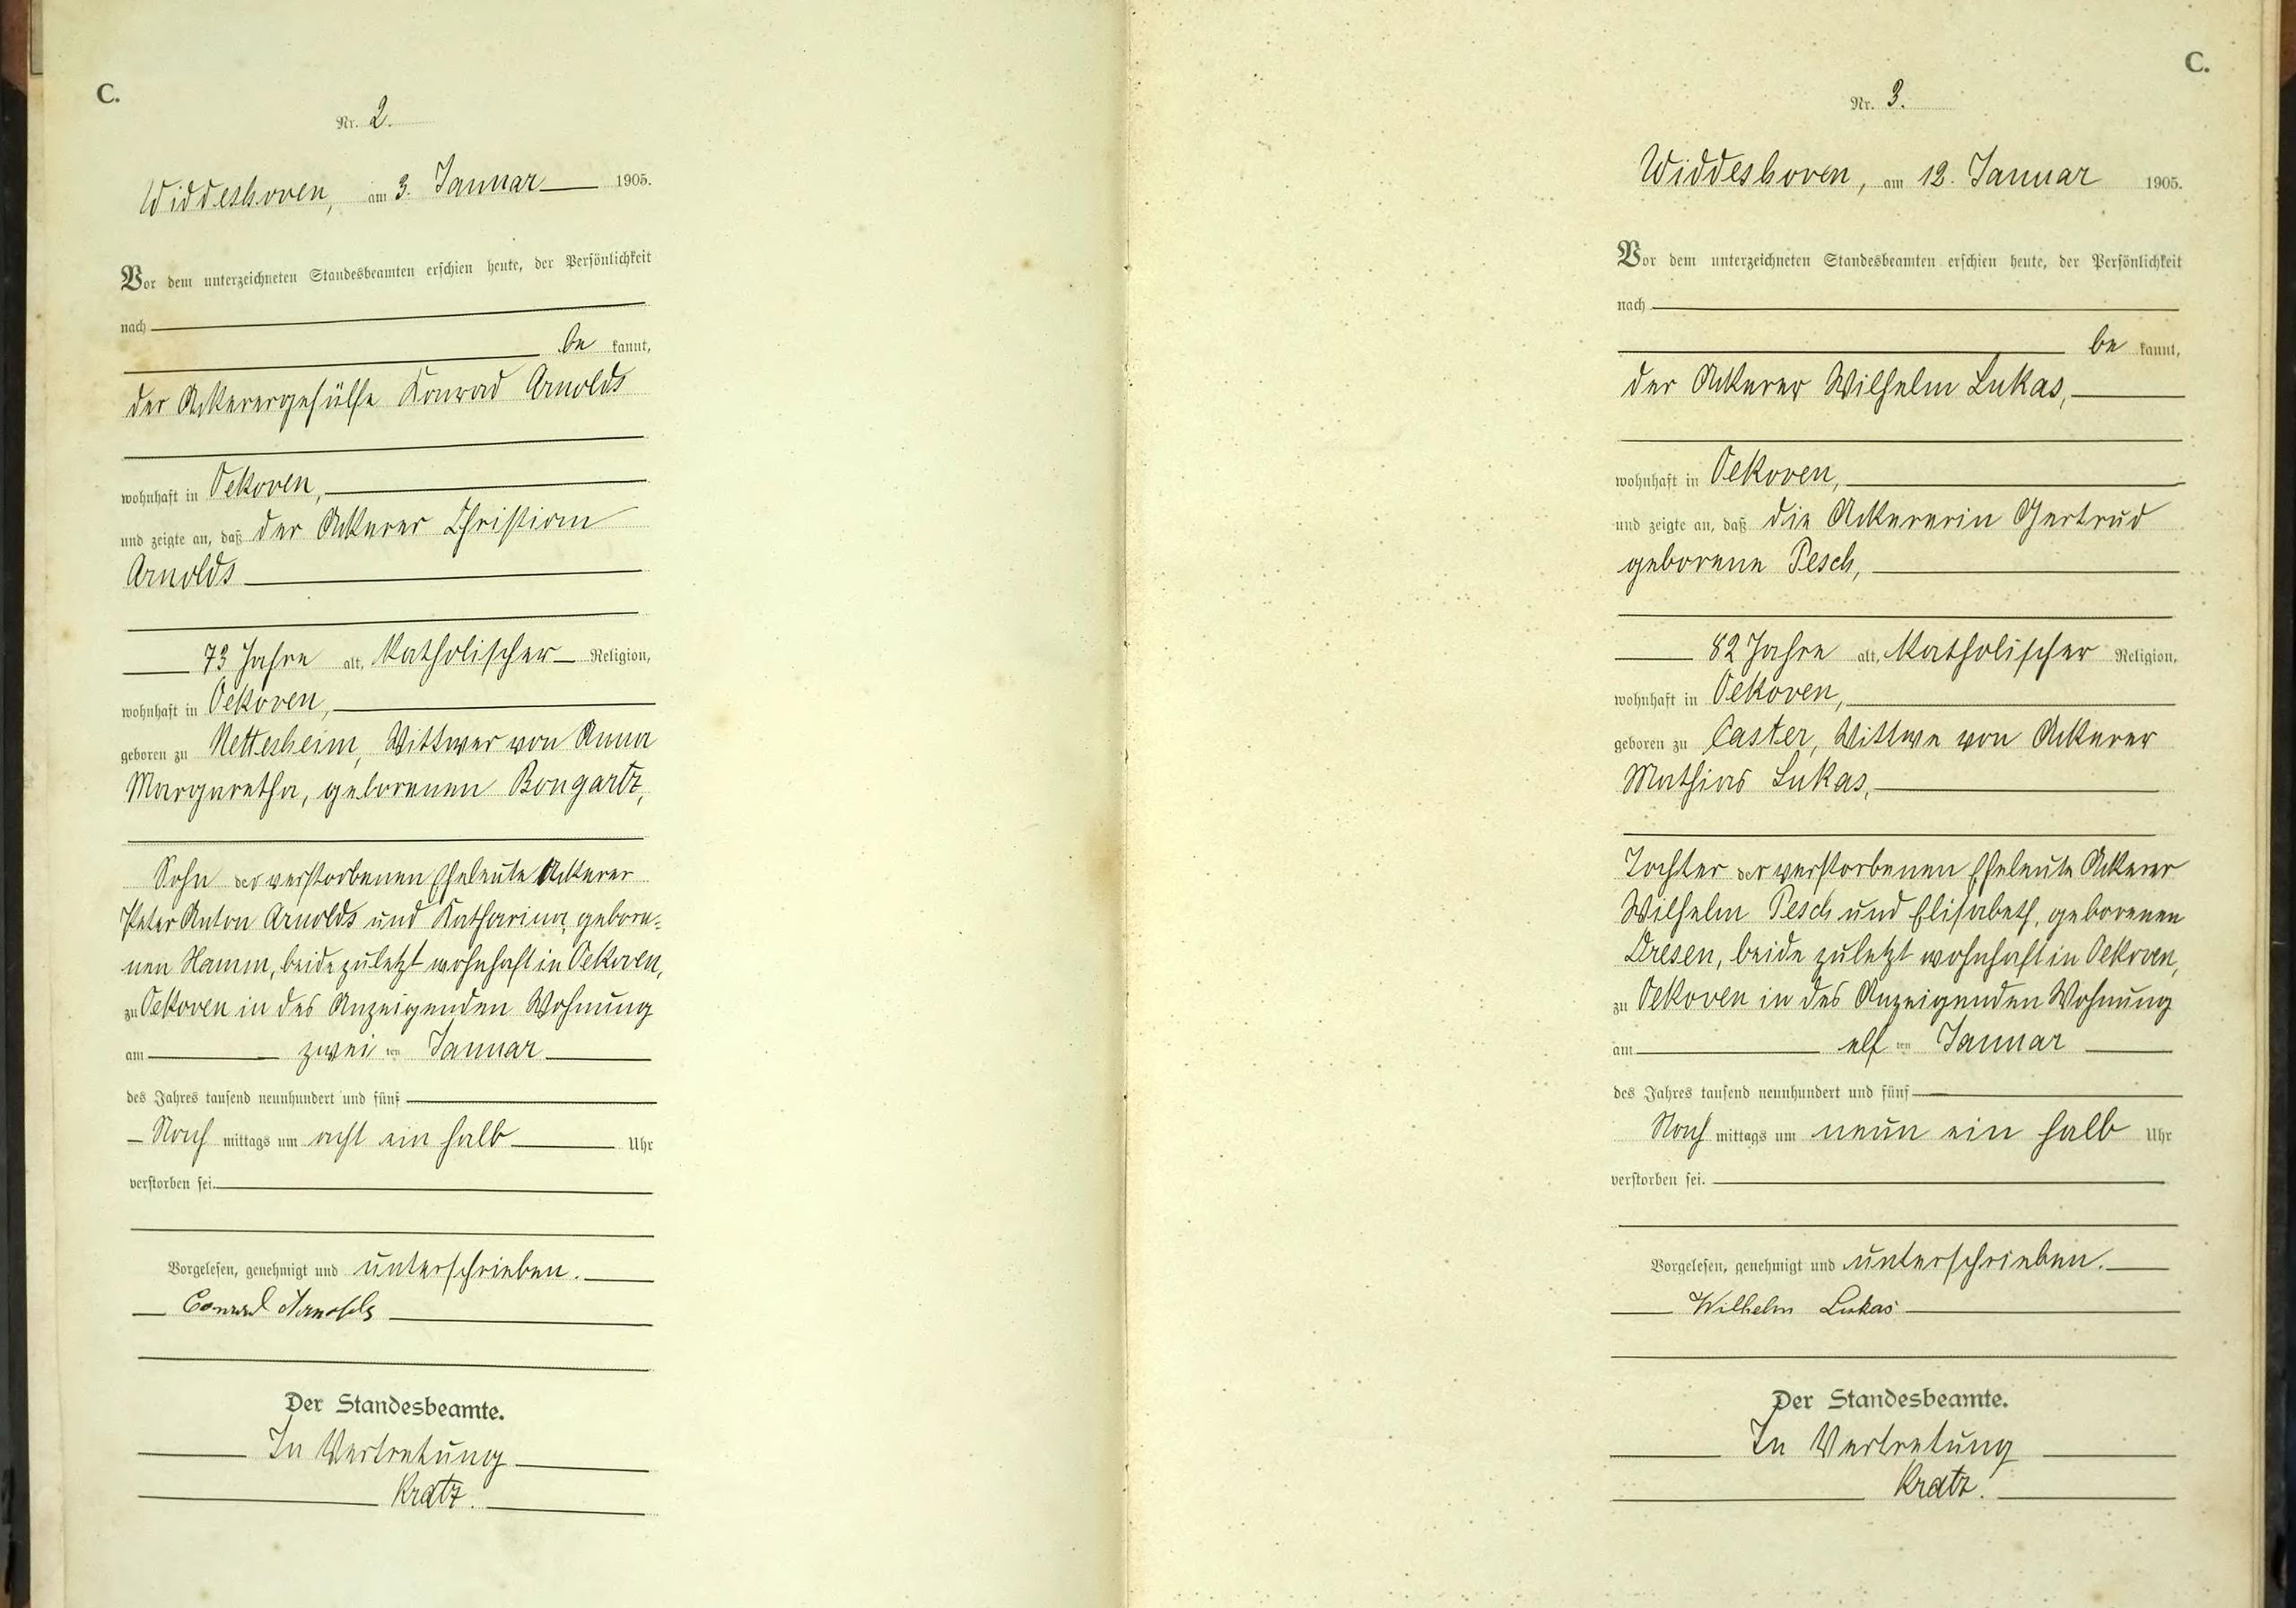 C.
Nr. 2.
Widdeshoven, am 3. Januar 1905.
Vor dem unterzeichneten Standesbeamten erschien heute, der Persönlichkeit
nach
be kannt,
der Ackerergehülfe Konrad Arnolds
wohnhaft in Oekoven,
und zeigte an, daß der Ackerer Christian
Arnolds
73 Jahre alt, katholischer Religion,
wohnhaft in Oekoven,
geboren zu Nettesheim, Wittwer von Anna
Margaretha, geborenen Bongartz,
Sohn der verstorbenen Eheleute Ackerer
Peter Anton Arnolds und Katharina, gebore-
nen Hamm, beide zuletzt wohnhaft in Oekoven,
zu Oekoven in des Anzeigenden Wohnung
am zwei ten Januar
des Jahres tausend neunhundert und fünf
Nach mittags um acht ein halb Uhr
verstorben sei.
Vorgelesen, genehmigt und unterschrieben.
Conrad Arnolds
Der Standesbeamte.
In Vertretung
Kratz.
C.
Nr. 3.
Widdeshoven, am 12. Januar 1905.
Vor dem unterzeichneten Standesbeamten erschien heute, der Persönlichkeit
nach
be kannt,
der Ackerer Wilhelm Lukas,
wohnhaft in Oekoven,
und zeigte an, daß die Ackererin Gertrud
geborene Pesch,
82 Jahre alt, katholischer Religion,
wohnhaft in Oekoven,
geboren zu Caster, Wittwe von Ackerer
Mathias Lukas,
Tochter der verstorbenen Eheleute Ackerer
Wilhelm Pesch und Elisabeth, geborenen
Dresen, beide zuletzt wohnhaft in Oekoven,
zu Oekoven in des Anzeigenden Wohnung
am elf ten Januar
des Jahres tausend neunhundert und fünf
Nach mittags um neun ein halb Uhr
verstorben sei.
Vorgelesen, genehmigt und unterschrieben.
Wilhelm Lukas
Der Standesbeamte.
In Vertretung
Kratz.